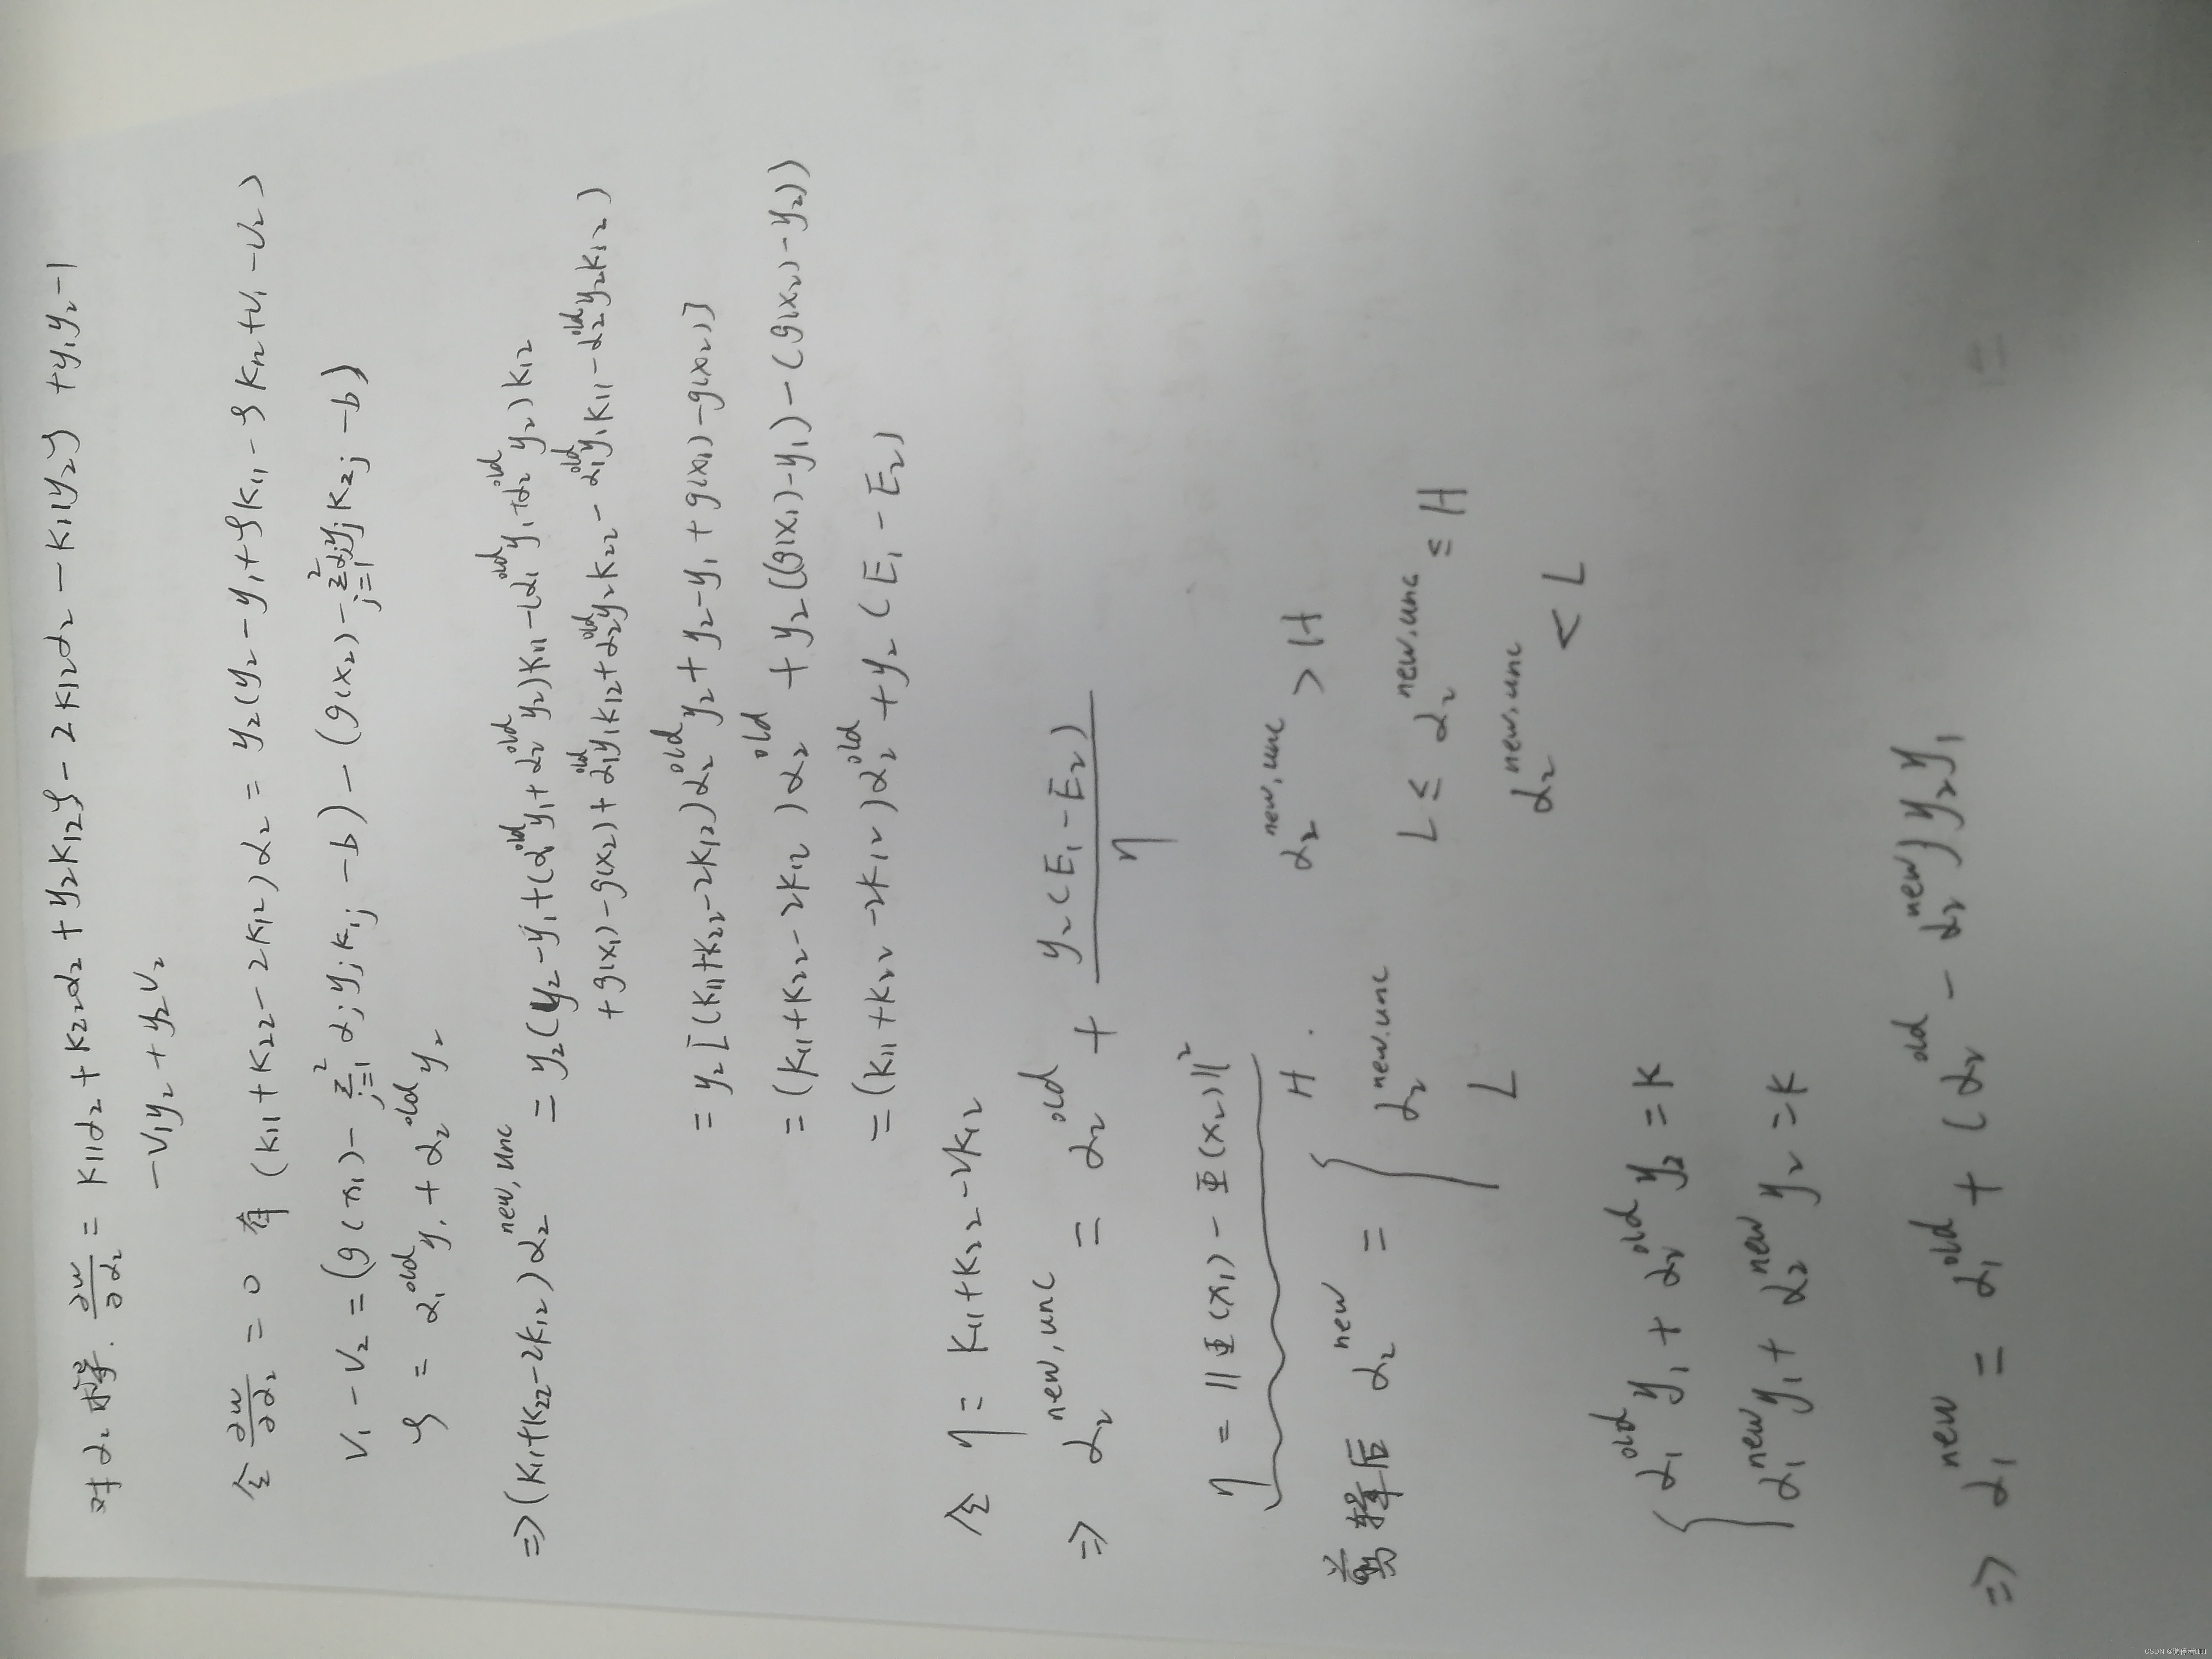 对α₂求导. ∂w/∂α₂ = K₁₁α₂ + K₂₂α₂ + y₂K₁₂ς - 2K₁₂α₂ - K₁₁y₂ς + y₁y₂ - 1
- v₁y₂ + y₂v₂
令 ∂w/∂α₂ = 0 有 (K₁₁ + K₂₂ - 2K₁₂)α₂ = y₂(y₂ - y₁ + ςK₁₁ - ςK₁₂ + v₁ - v₂)
v₁ - v₂ = (g(x₁) - Σ_{j=1}^{2} αⱼyⱼK₁ⱼ - b) - (g(x₂) - Σ_{j=1}^{2} αⱼyⱼK₂ⱼ - b)
ς = α₁^{old}y₁ + α₂^{old}y₂
⇒ (K₁₁+K₂₂-2K₁₂)α₂^{new,unc}
= y₂(y₂ - y₁ + (α₁^{old}y₁ + α₂^{old}y₂)K₁₁ - (α₁^{old}y₁ + α₂^{old}y₂)K₁₂
+ g(x₁) - g(x₂) + α₁^{old}y₁K₁₂ + α₂^{old}y₂K₂₂ - α₁^{old}y₁K₁₁ - α₂^{old}y₂K₁₂)
= y₂[(K₁₁+K₂₂-2K₁₂)α₂^{old}y₂ + y₂ - y₁ + g(x₁) - g(x₂)]
= (K₁₁ + K₂₂ - 2K₁₂)α₂^{old} + y₂((g(x₁) - y₁) - (g(x₂) - y₂))
= (K₁₁ + K₂₂ - 2K₁₂)α₂^{old} + y₂(E₁ - E₂)
令 η = K₁₁ + K₂₂ - 2K₁₂
⇒ α₂^{new,unc} = α₂^{old} + y₂(E₁ - E₂)/η
η = ||Φ(x₁) - Φ(x₂)||²
H. α₂^{new,unc} > H
剪辑后 α₂^{new} = { α₂^{new,unc} L ≤ α₂^{new,unc} ≤ H
L α₂^{new,unc} < L
{ α₁^{old}y₁ + α₂^{old}y₂ = K
α₁^{new}y₁ + α₂^{new}y₂ = K
⇒ α₁^{new} = α₁^{old} + (α₂^{old} - α₂^{new})y₂y₁